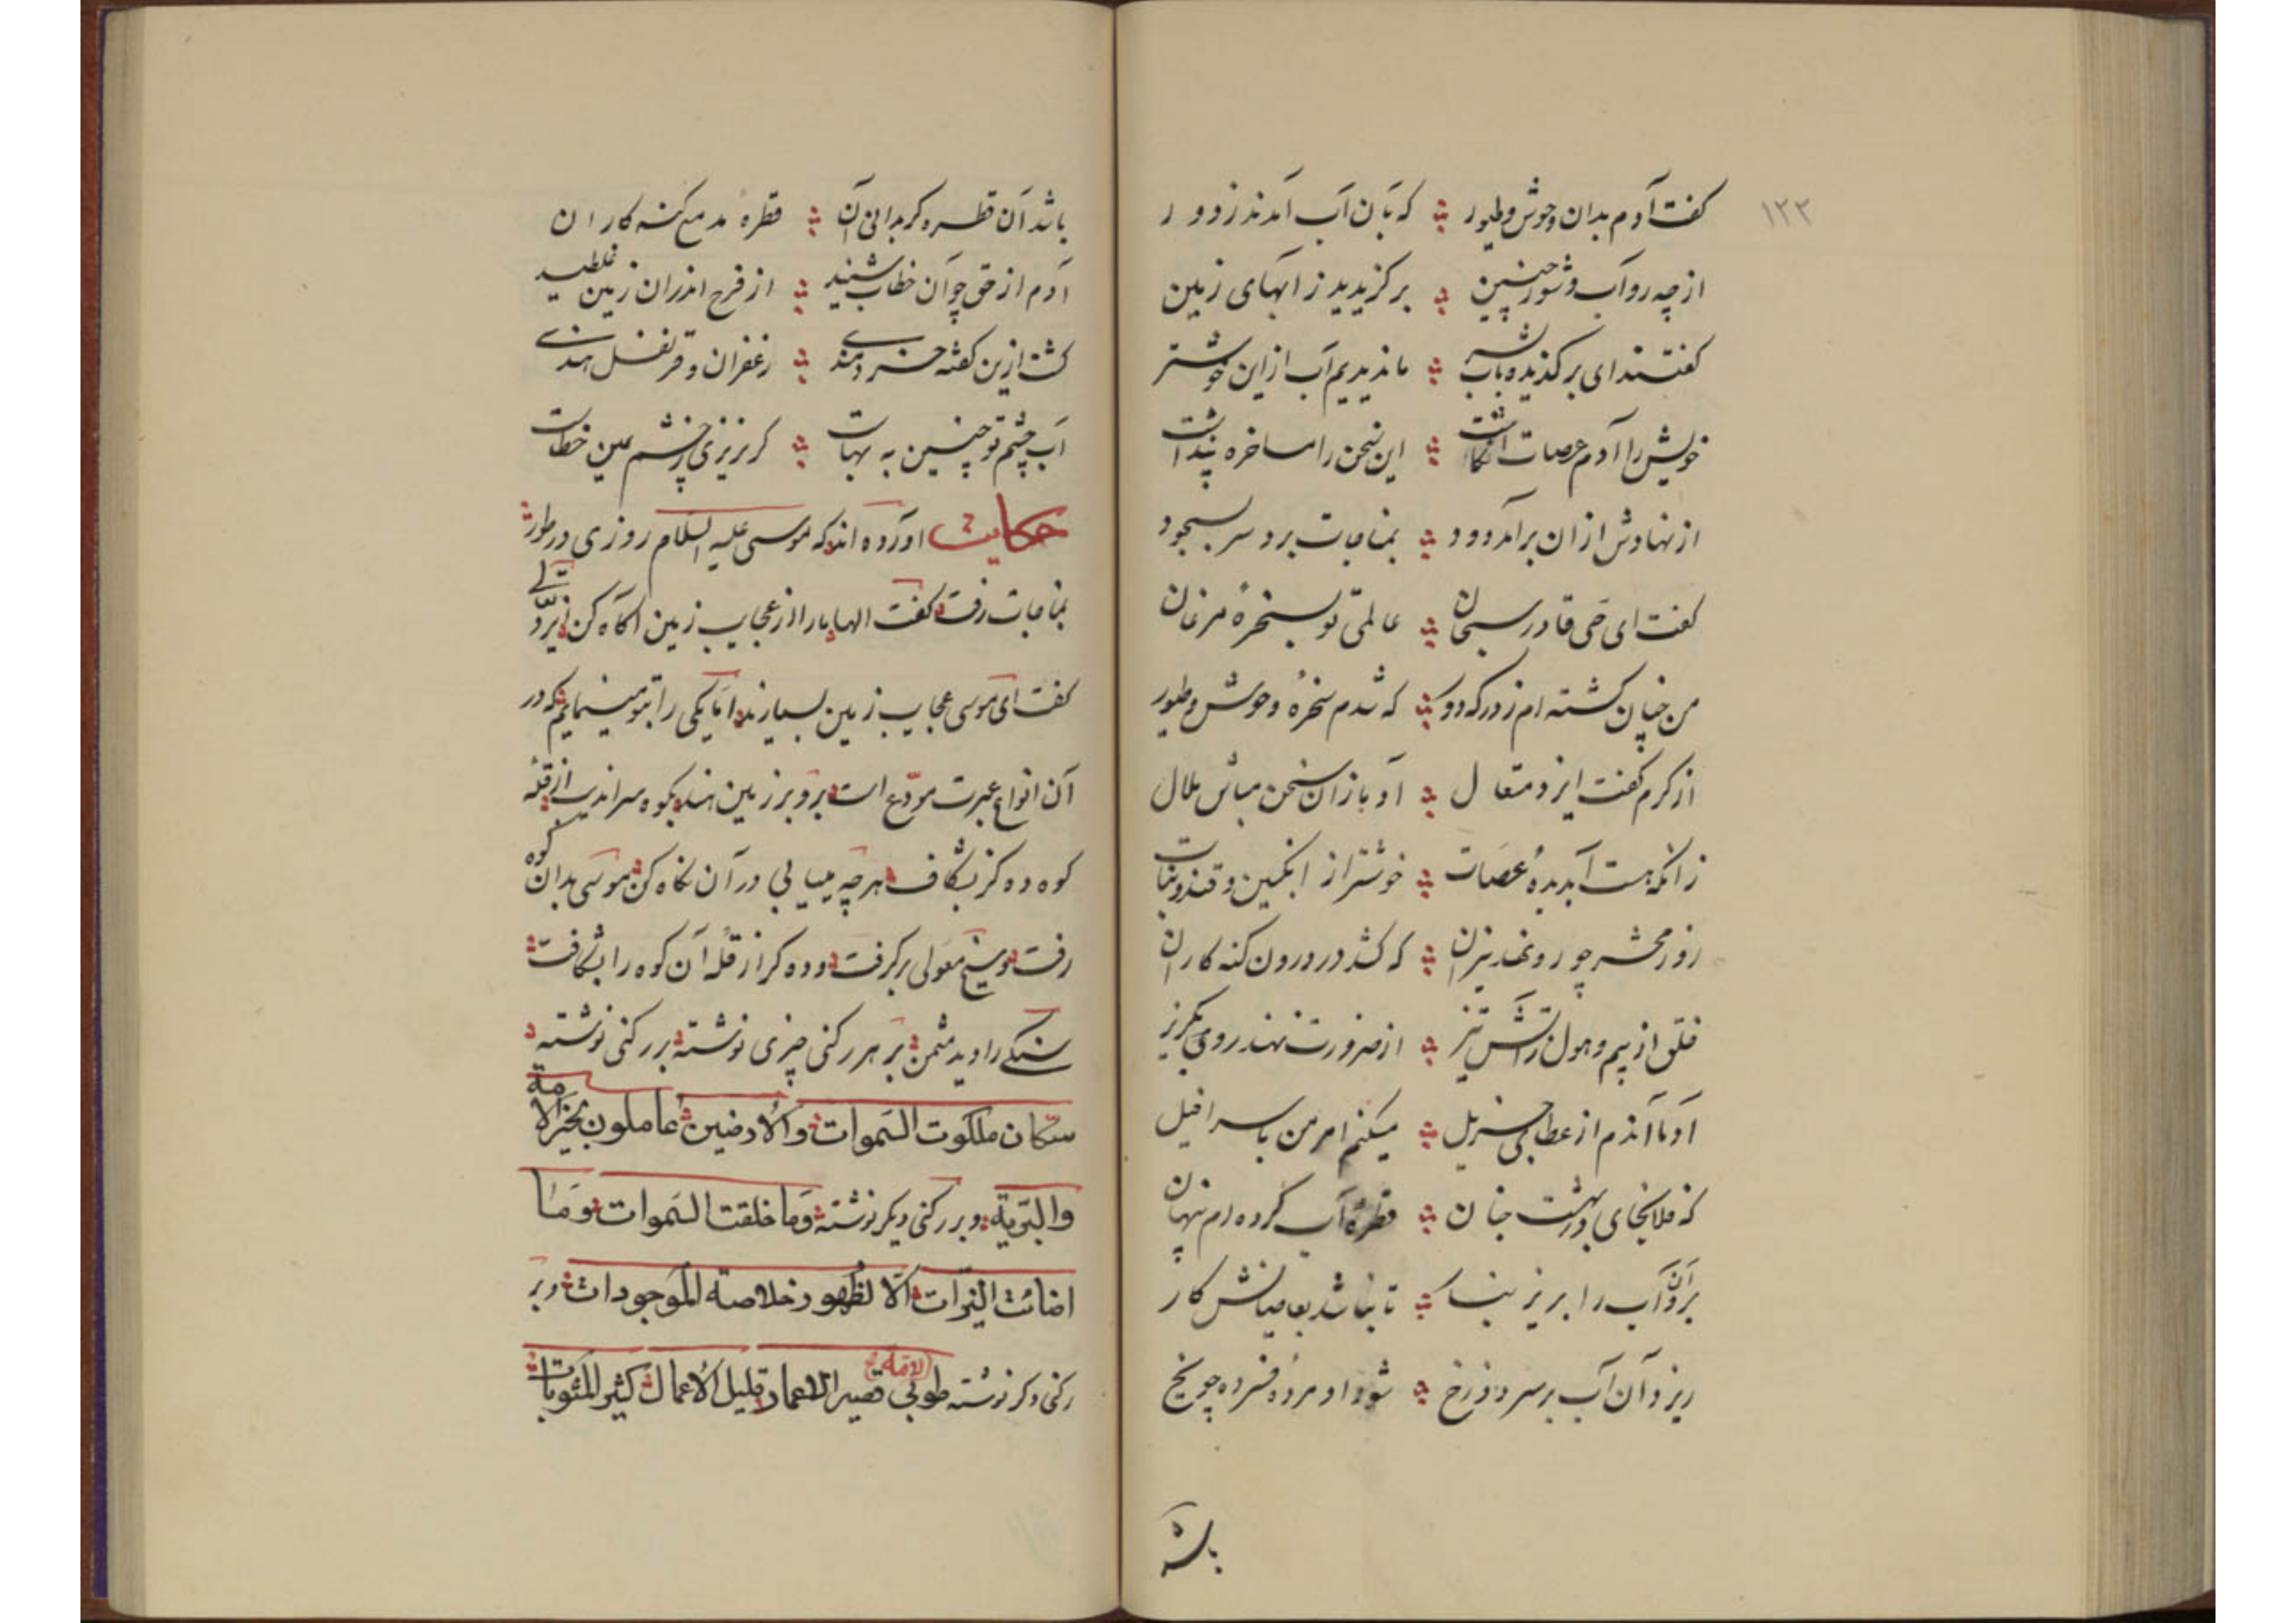 ۱۲۲
کفت آدم بدان وحوش و طیور که بآن آب آمدند ز دور
از چه رو آب شور چنین برکزیدید ز ابهای زمین
کفتند ای برکزیده باب بشر ما ندیدیم آب ازین خوشتر
خویش را آدم عرصات انکاشت این سخن را مساخره پنداشت
از نهادش ازان برآمد دود بمناجات برد سر بسجود
کفت ای حی قادر سبحان عالمی تو بسخرهٔ مرغان
من چنان کشته‌ام ز درکه دور که شدم سخرهٔ وحوش و طیور
از کرم کفت ایزد متعال آدما زان سخن مباش ملال
زانکه هست آبدیدهٔ عصات خوشتر از انکبین و قند و نبات
روز محشر چو رو نهد نیران که کشد در درون کنه کاران
خلق از بیم و هول آتش تیز از ضرورت نهند رو بکریز
آدما آندم از عطای جزیل میکنم امر من باسرافیل
که فلانجای در بهشت جنان قطرهٔ آب کرده‌ام پنهان
برو آن آب را بریز بنار تا نباشد بعاصیانش کار
ریزد آن آب بر سر دوزخ شود او مرده و فسرده چو یخ
باشد
باشد آن قطره کر بدانی آن قطرهٔ مدمع کنه کاران
آدم از حق چو آن خطاب شنید از فرح اندران زمین غلطید
کشت ازین کفته خردمندی زعفران و قرنفل هندی
آب چشم تو چنین به بهاست کر نریزی ز چشم عین خطاست
حکایت آورده‌اند که موسی علیه السلام روزی در طور
بمناجات رفت کفت الها مارا از عجایب زمین آکاه کن ایزد تعالی
کفت ای موسی عجایب زمین بسیارند اما یکی را بتو مینمایم که در
آن انواع عبرت مودع است برو بر زمین هند بکوه سراندیب از قلهٔ
کوه ده کز بشکاف هر چه میابی در آن نکاه کن موسی بدان کوه
رفت و میخ معولی برکرفت و ده کز از قلهٔ آن کوه را بشکافت
سنکی را دید مثمن بر هر رکنی چیزی نوشته بر رکنی نوشته
سکان ملکوت السموات والأرضین عاملون بخیر الأمة
والبریة و بر رکنی دیکر نوشته وما خلقت السموات وما
اضائت النیرات الا لظهور خلاصة الموجودات و بر
رکنی دکر نوشته طوبی الأمة قصیر الاعمار قلیل الأعمال کثیر المثوبات